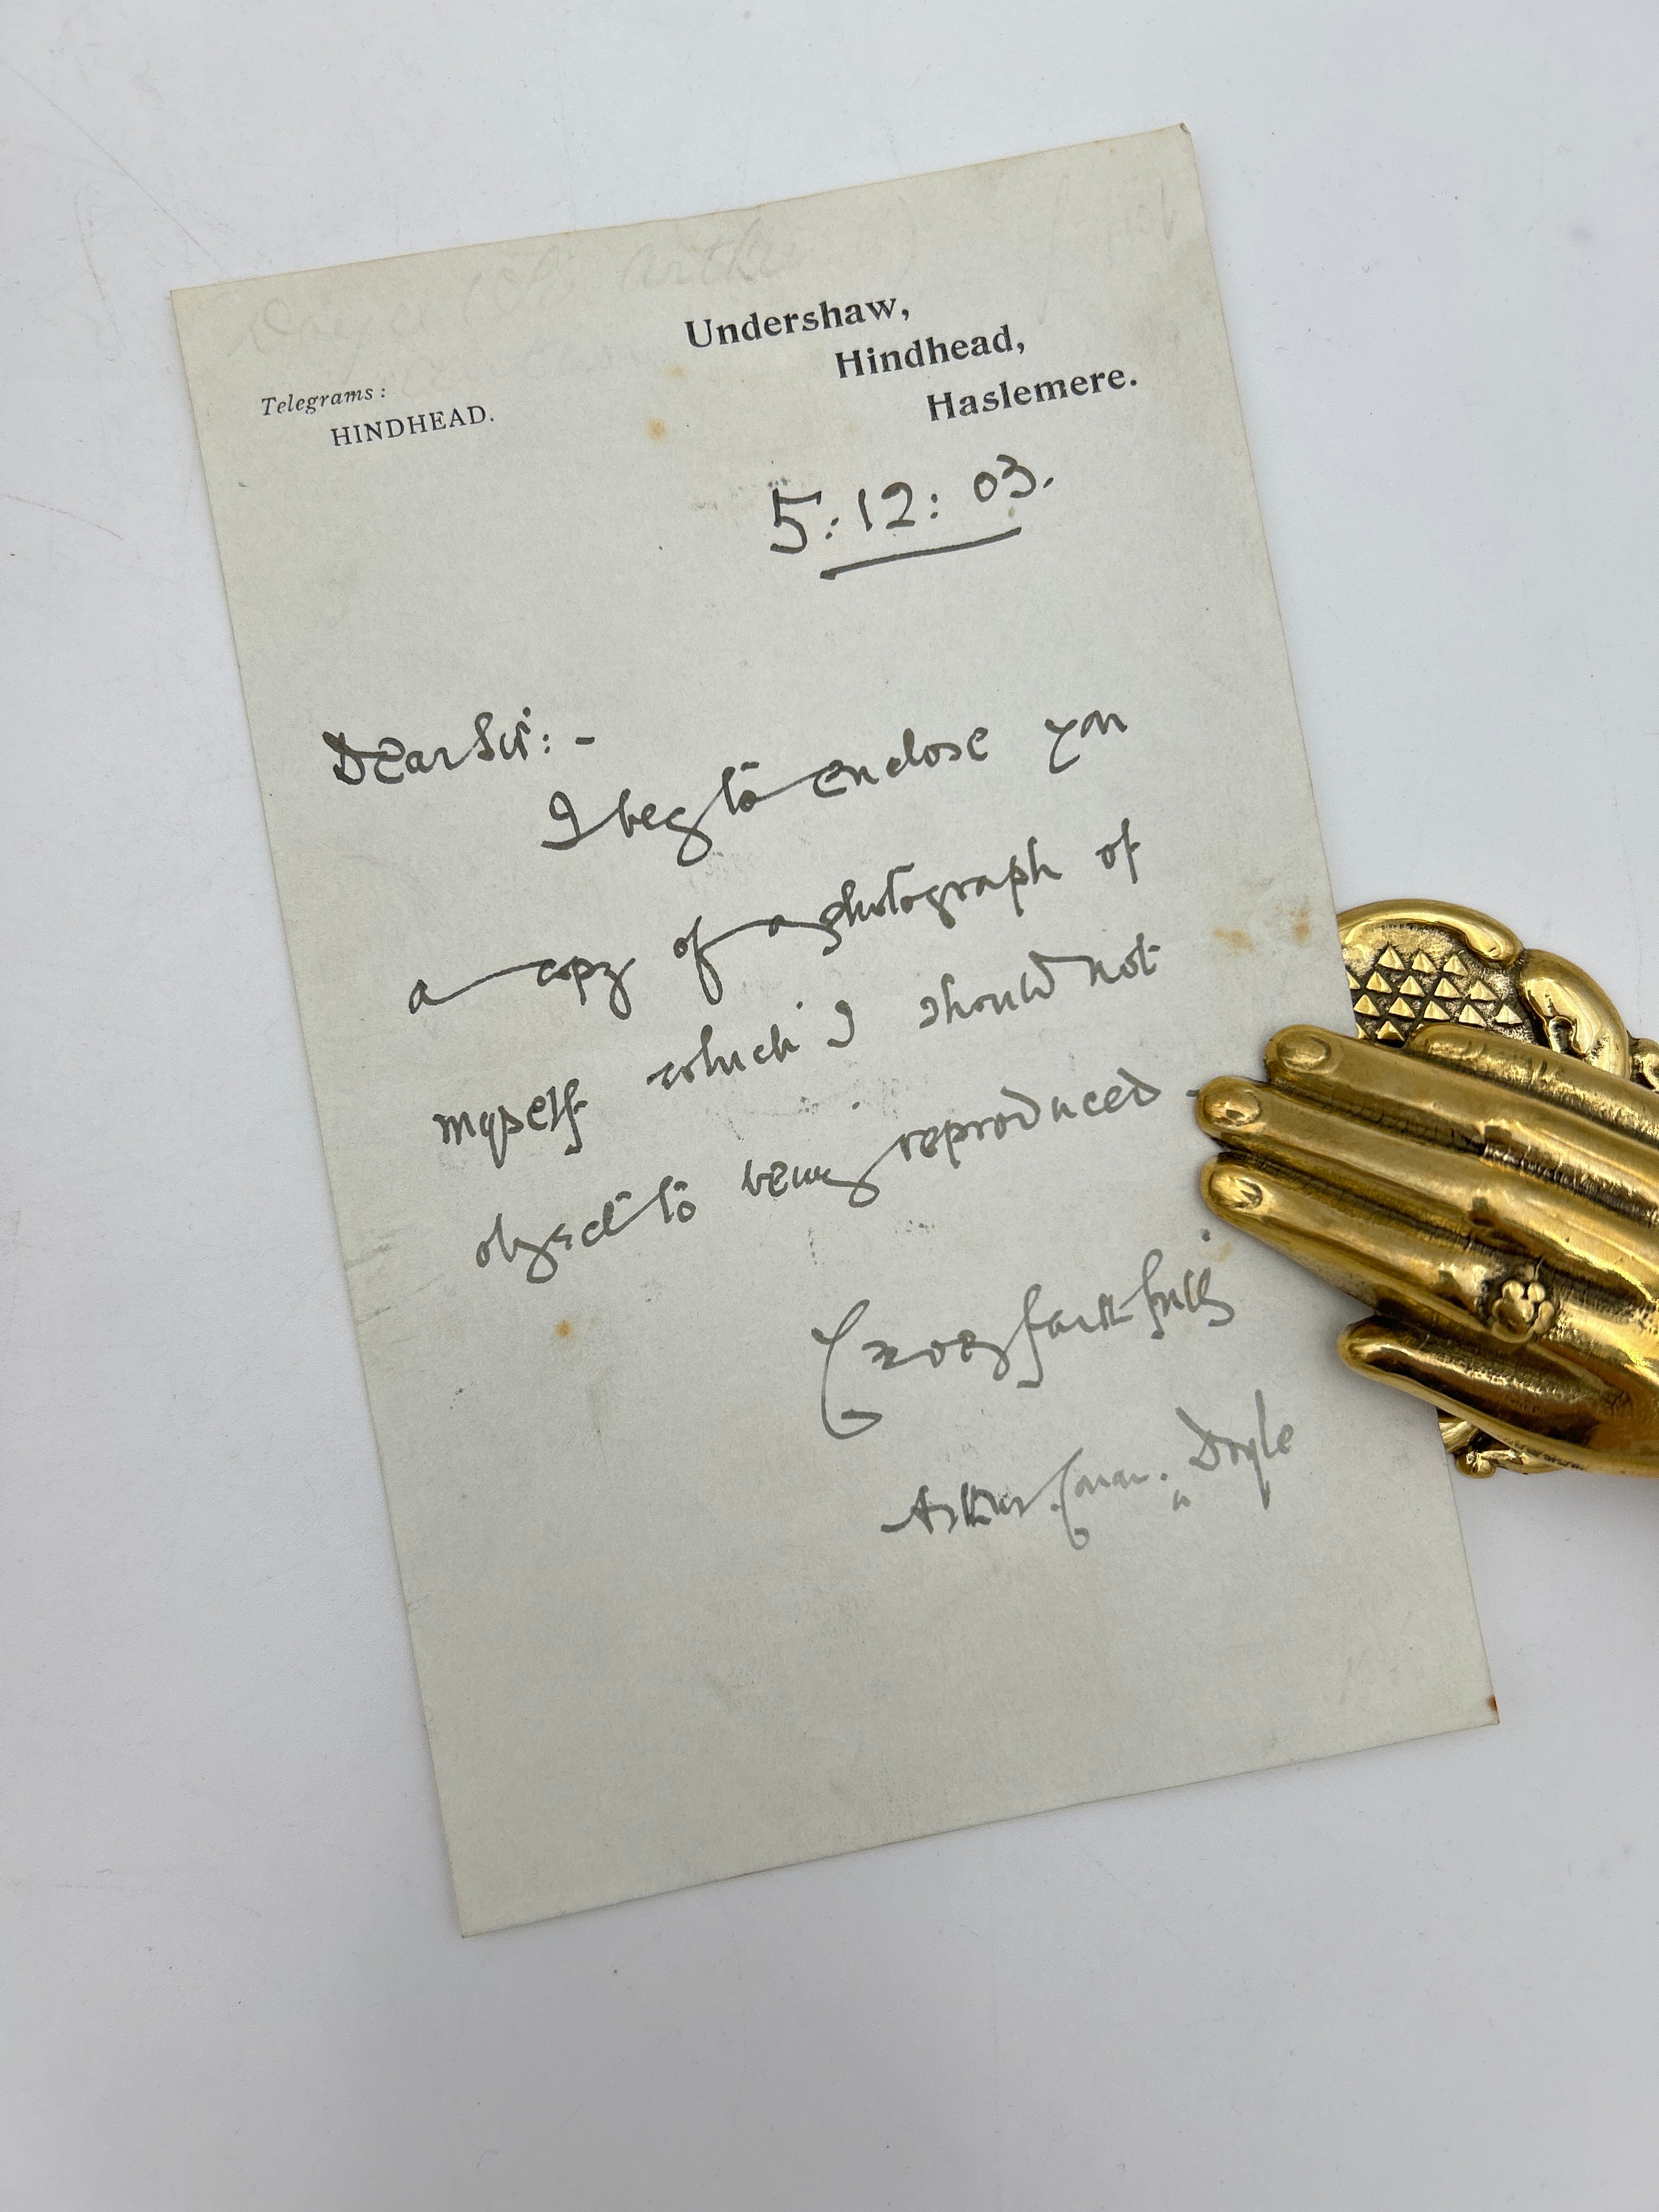 Arthur
Undershaw,
Hindhead,
Haslemere.
Telegrams:
HINDHEAD.
5:12:03.
Dear Sir:-
I beg to enclose you
a copy of a photograph of
myself which I should not
object to being reproduced -
faithfully
Arthur Conan Doyle